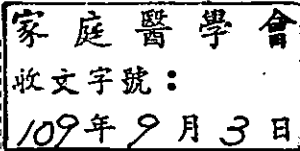 家庭醫學會
收文字號：
109年9月3日